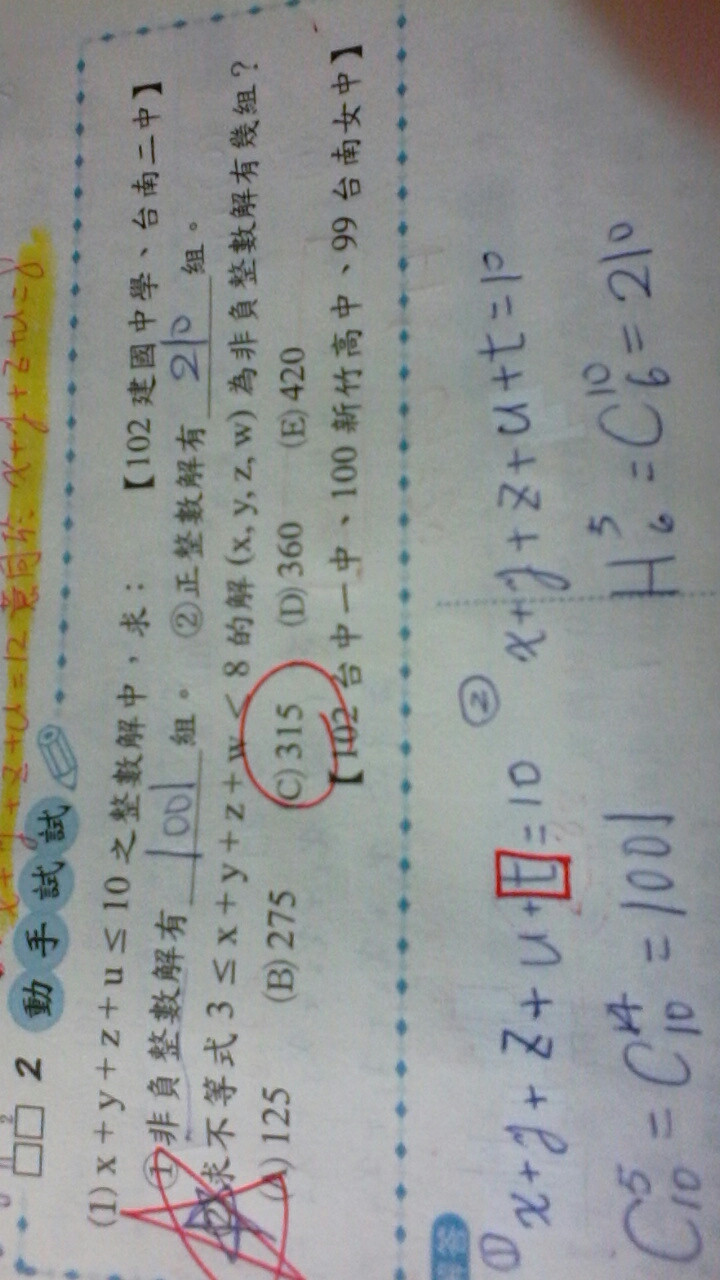 x+y+z+u=12 意同於: x+y+z+u=8
2 動手試試
(1) x + y + z + u ≤ 10 之整數解中，求： 【102 建國中學、台南二中】
①非負整數解有 1001 組。 ②正整數解有 210 組。
(2)求不等式 3 ≤ x + y + z + w < 8 的解 (x, y, z, w) 為非負整數解有幾組？
(A) 125 (B) 275 (C) 315 (D) 360 (E) 420
【102 台中一中、100 新竹高中、99 台南女中】
解答
① x+y+z+u+t=10 ② x+y+z+u+t=10
C⁵₁₀ = C¹⁴₁₀ = 1001 H⁵₆ = C¹⁰₆ = 210